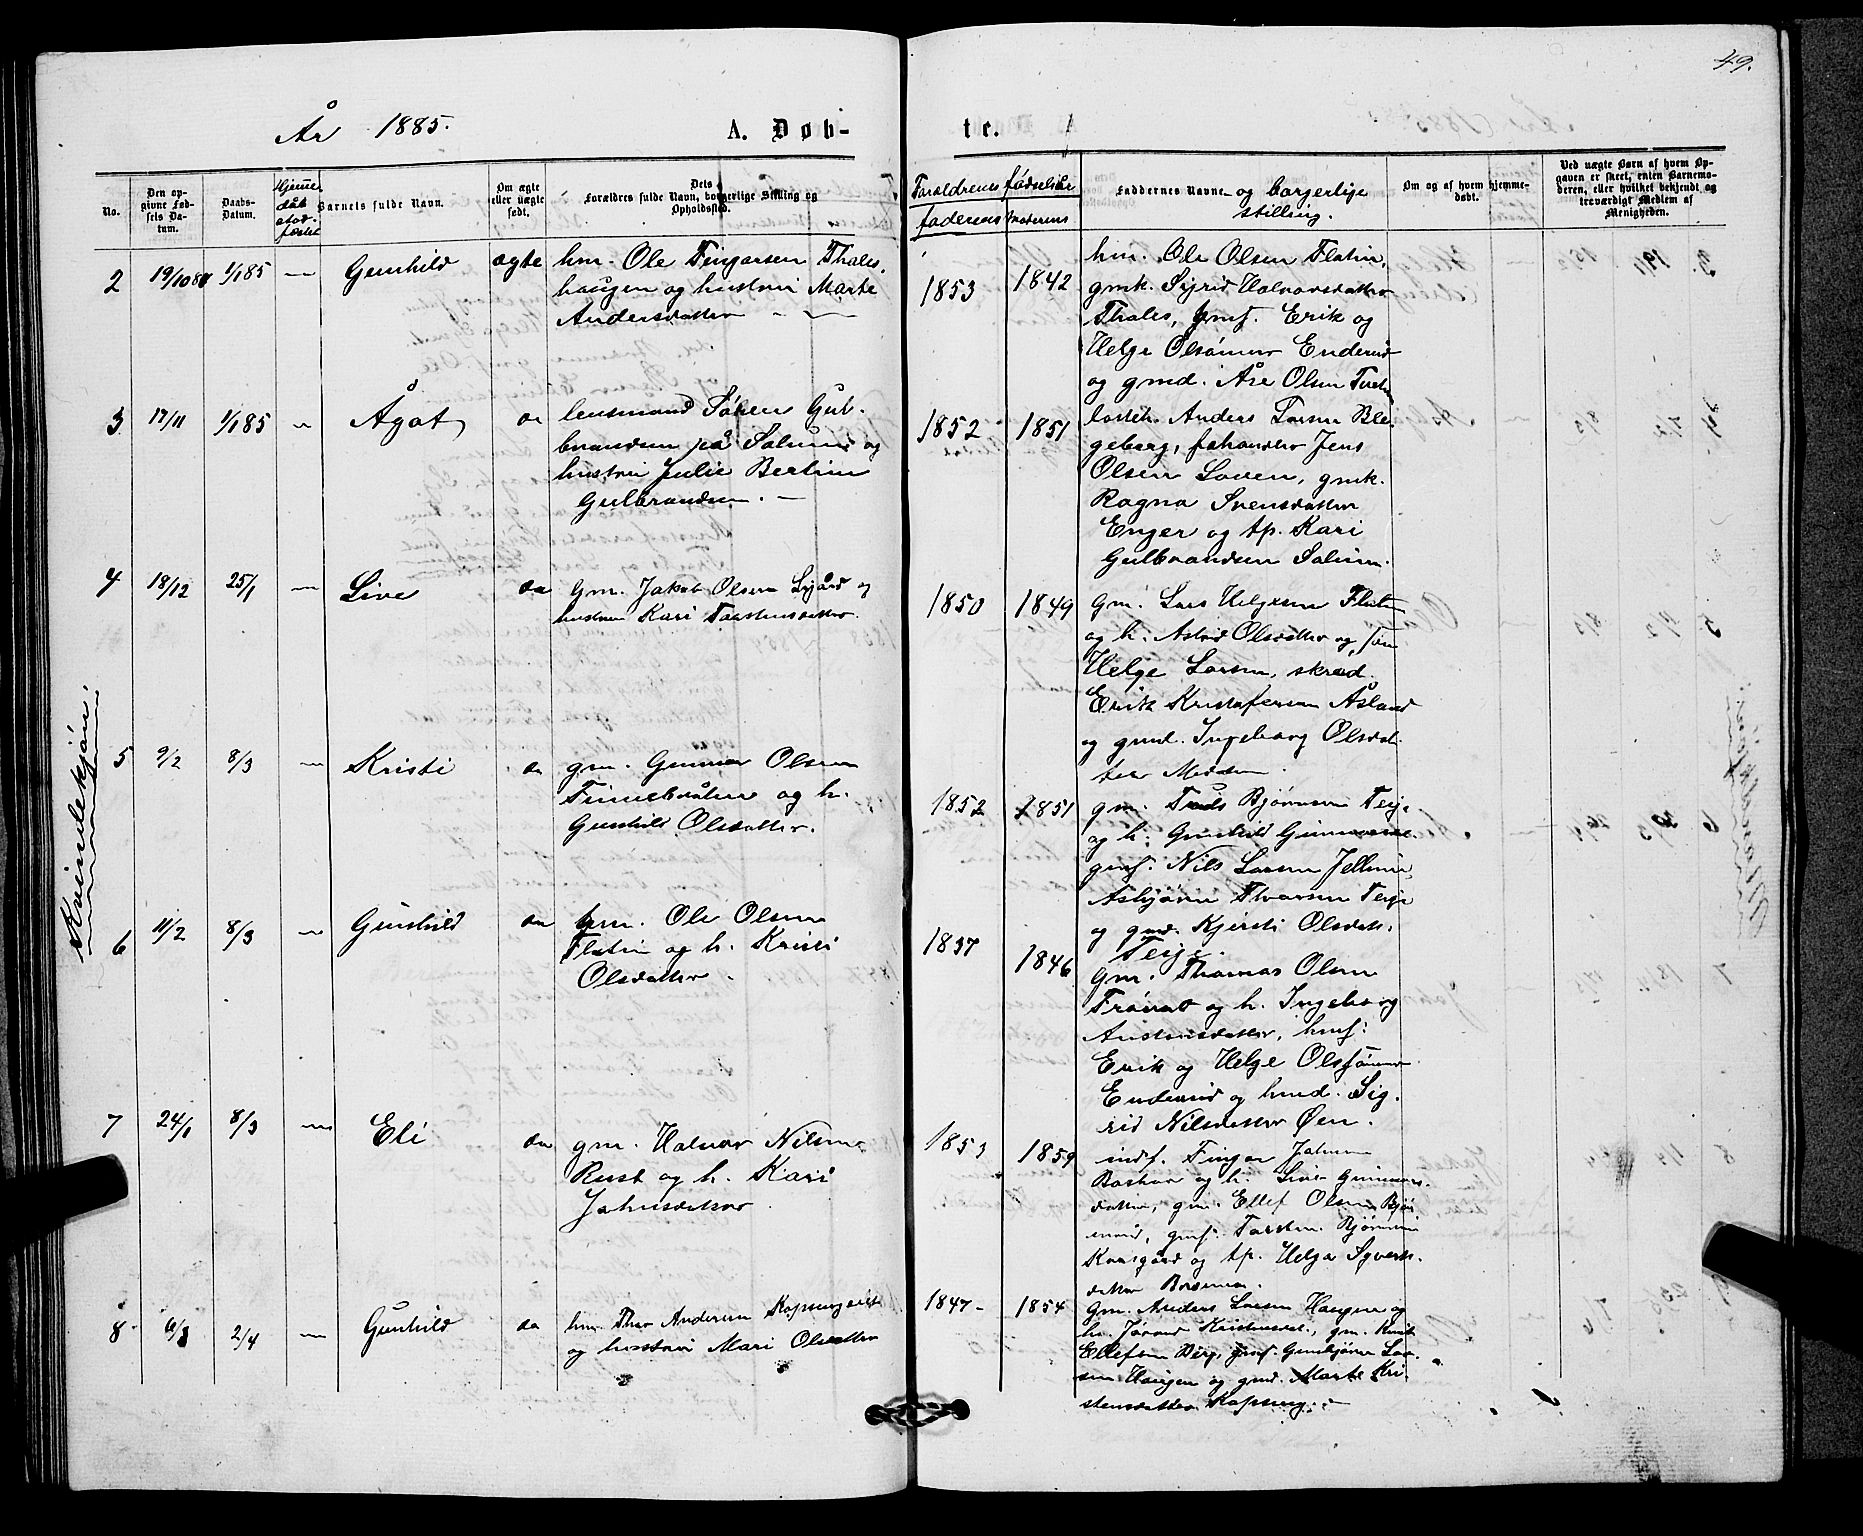 49.
År 1885.
A. Døb-
te.
No.
Den op-
givne Fød-
sels Da-
tum.
Daabs-
Datum.
Hjemme
dåb
stad-
fæstet
Barnets fulde Navn.
Om ægte
eller uægte
født.
Dets
Forældres fulde Navn, borgerlige Stilling og
Opholdssted.
Foraldrenes fødselsår
faderens moderens
Faddernes Navne og borgerlige
stilling.
Om og af hvem hjemme-
døbt.
Ved uægte Børn af hvem Op-
gaven er skeet, enten Barnemo-
deren, eller hvilket bekjendt og
troværdigt Medlem af
Menigheden.
Kvindekjön:
2 19/10 84 1/1 85 — Gunhild ægte
hm. Ole Fingarsen Thales-
haugen og hustru Marte
Andersdatter
1853 1842
hm. Ole Olsen Flatin,
gmk. Sigrid Halvorsdatter
Thales, gmf. Erik og
Helge Olsønner Enderud
og gmd. Åse Olsen
3 17/11 1/1 85 — Ågot
lensmand Søren Gul-
brandsen på Solum og
hustru Julie Bertine
Gulbrandsen. —
1852 1851
Anders Larsen Ble-
geberg, Jens
Olsen Loven, gmk.
Ragna Svensdatter
Enger og tp. Kari
Gulbrandsen Solum.
4 18/12 25/1 — Live do
Gm. Jakob Olsen Lygård og
hustru Kari Torstensdatter.
1850 1849
Gm. Lars Helgesen Flaten
og h. Astrid Olsdatter og søn
Helge Larsen, skræd.
Erik Kristofersen Åsland
og gmd. Ingeborg Olsdat-
ter
5 9/2 8/3 — Kristi do
gm. Gunnar Olsen
Finnebråten og h.
Gunhild Olsdatter.
1852 1851
gm. Truls Bjørnsen Teige
og h. Gunhild Gunnarsd.
gmf. Nils Larsen
Asbjørn Teige
og gmd. Kjersti Olsdatt.
Teige.
6 11/2 8/3 — Gunhild do
hm. Ole Olsen
Flatin og h. Kristi
Olsdatter.
1837 1846
gm. Thomas Olsen
og h. Ingeborg
hmf:
Erik og Helge Olssønner
Enderud og hmd. Sig-
rid Nilsdatter Øen.
7 24/1 8/3 — Eli do
gm. Halvor Nilsen
Rust og h. Kari
Johnsdatter
1853 1859
indf. Fingar Johnsen
og h. Live Gunnars-
datter, gm. Ellef Olsen
gmf. Torsten Bjørnsen
og tp. Helga Syverts-
datter
8 6/3 2/4 — Gunhild do
hm. Thor Andersen
og hustru Mari Olsdatter
1847 — 1854
Gm. Anders Larsen Haugen og
h. Jørand gm. Knut
Ellefsen Berg, gmf. Gunbjørn Lar-
sen Haugen og gmd. Marte Kri-
stensdatter